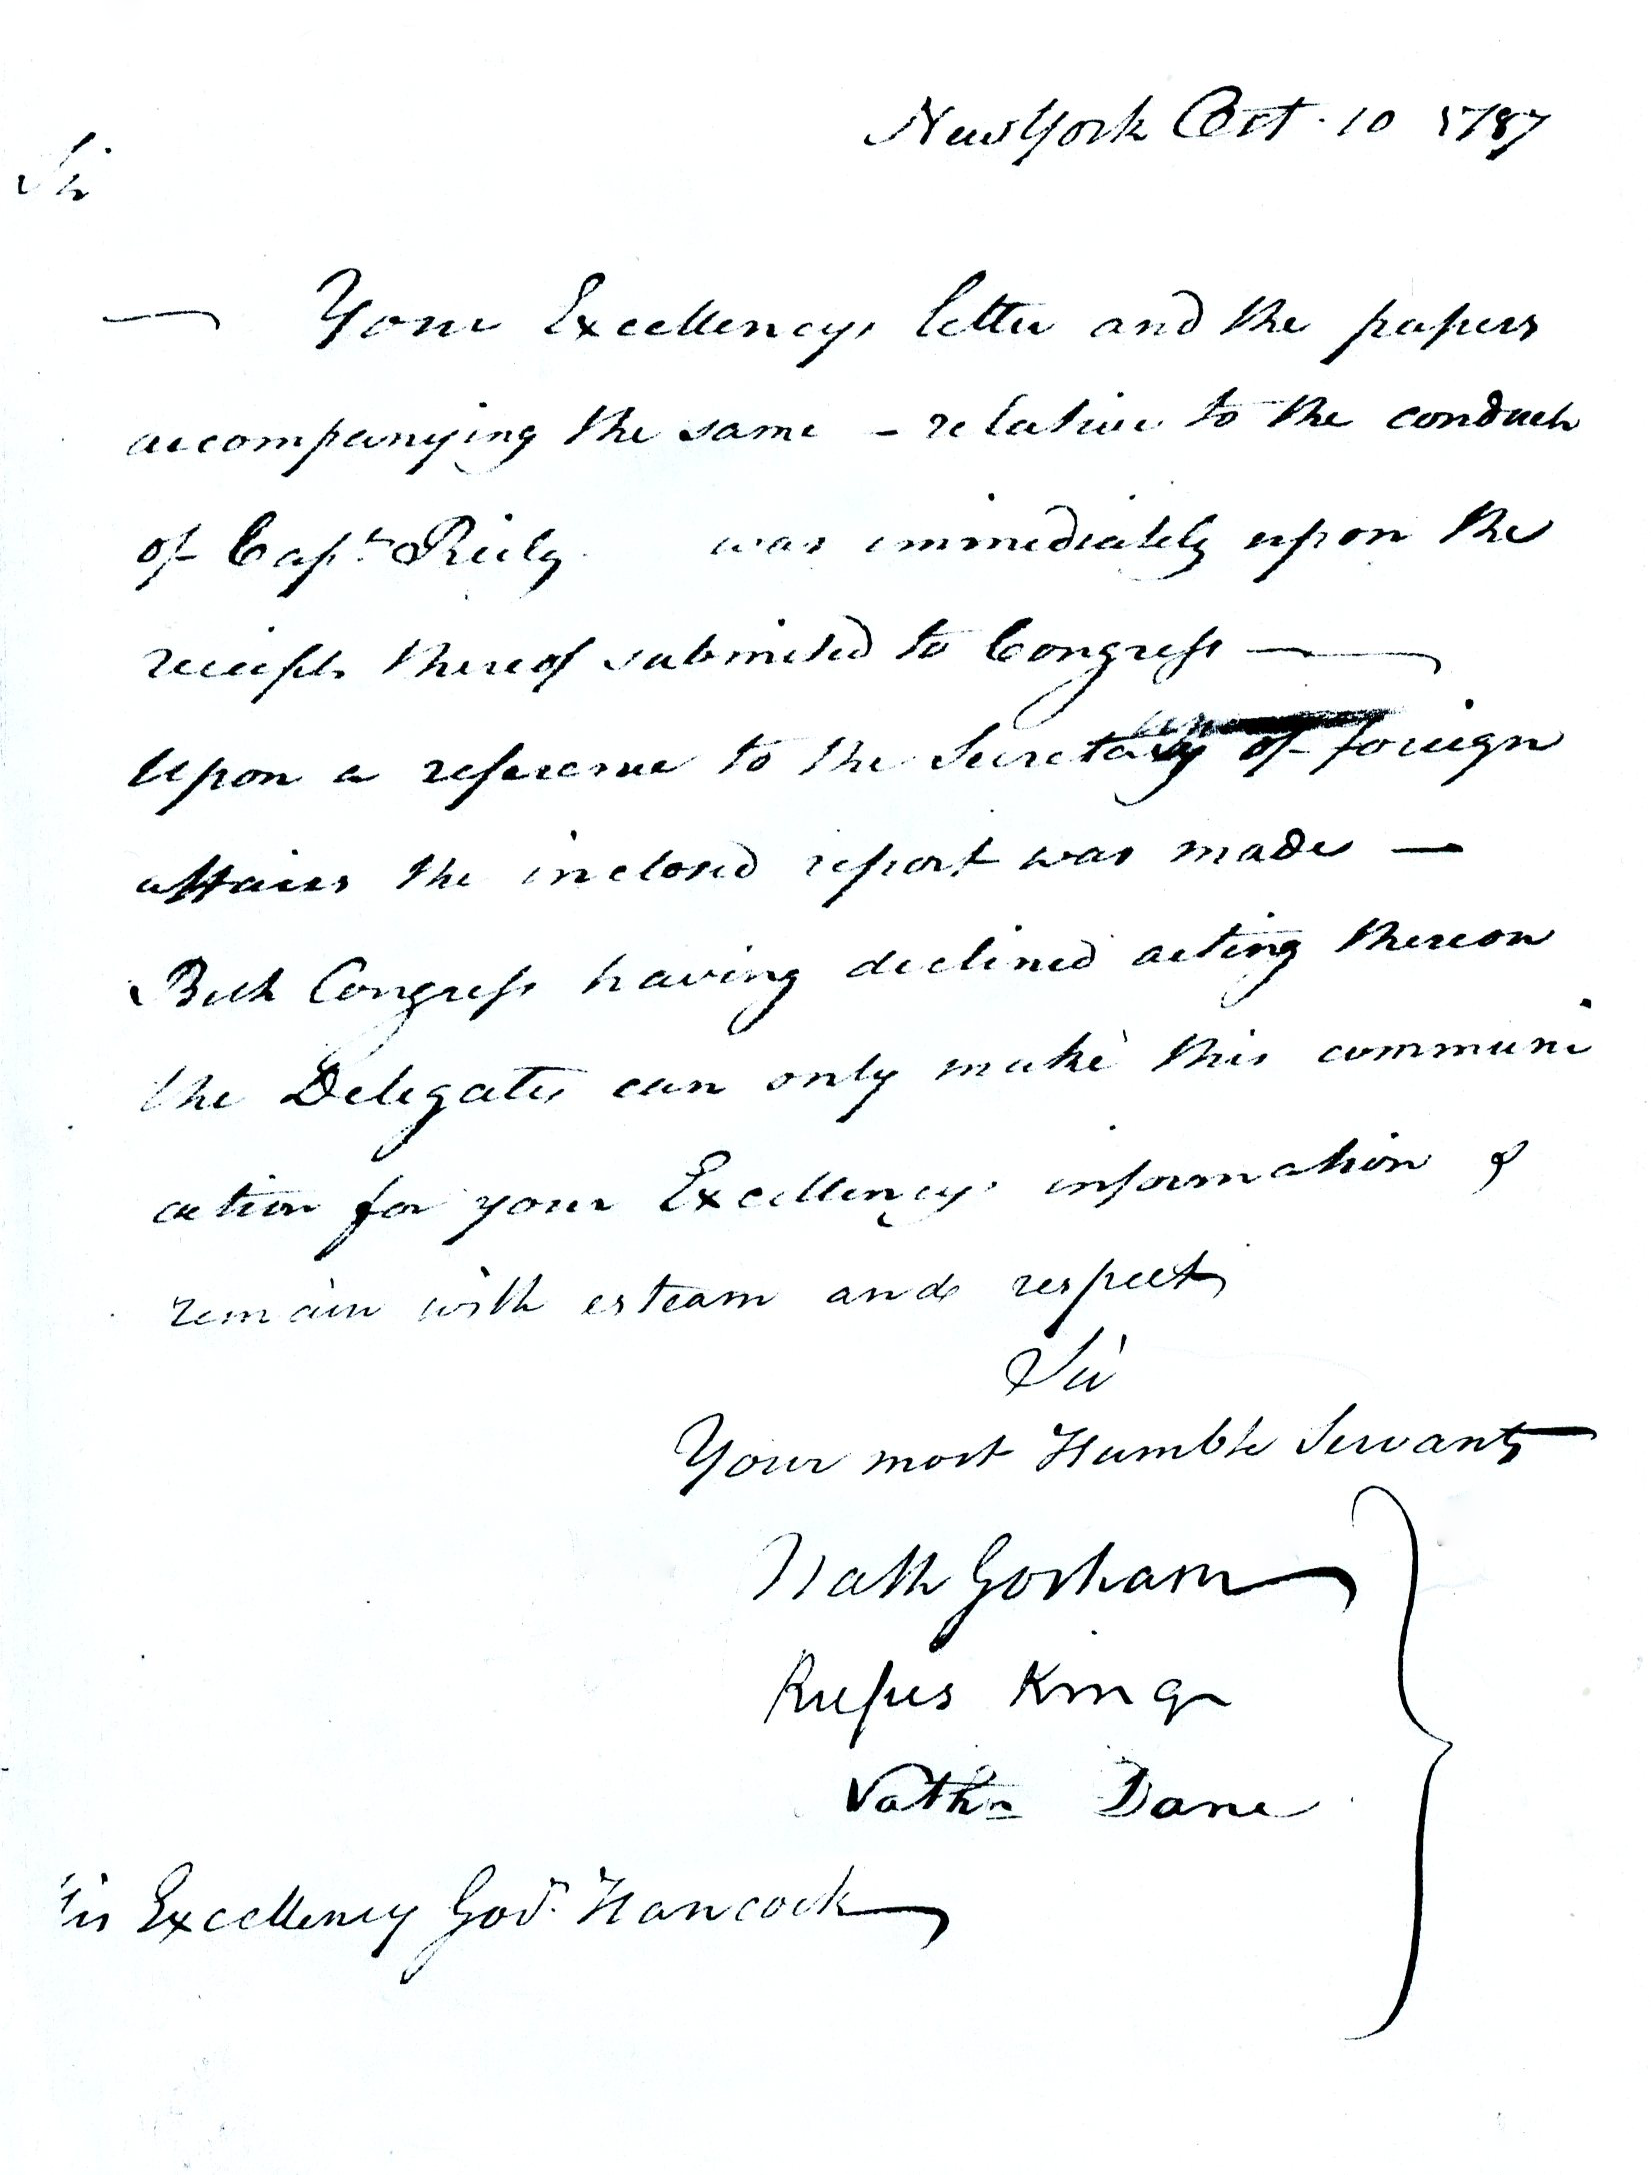 New York Oct. 10 1787
Sir
— Your Excellencys letter and the papers
accompanying the same - relative to the conduct
of Capt. Reily was immediately upon the
receipt thereof submited to Congress —
Upon a reference to the Secretary of foreign
affairs the inclosed report was made —
But Congress having declined acting thereon
the Delegates can only make this communi
cation for your Excellencys information &
remain with esteam and respect
Sir
Your most Humble Servants
Nath Gorham
Rufus King
Nathn Dane
His Excellency Gov. Hancock